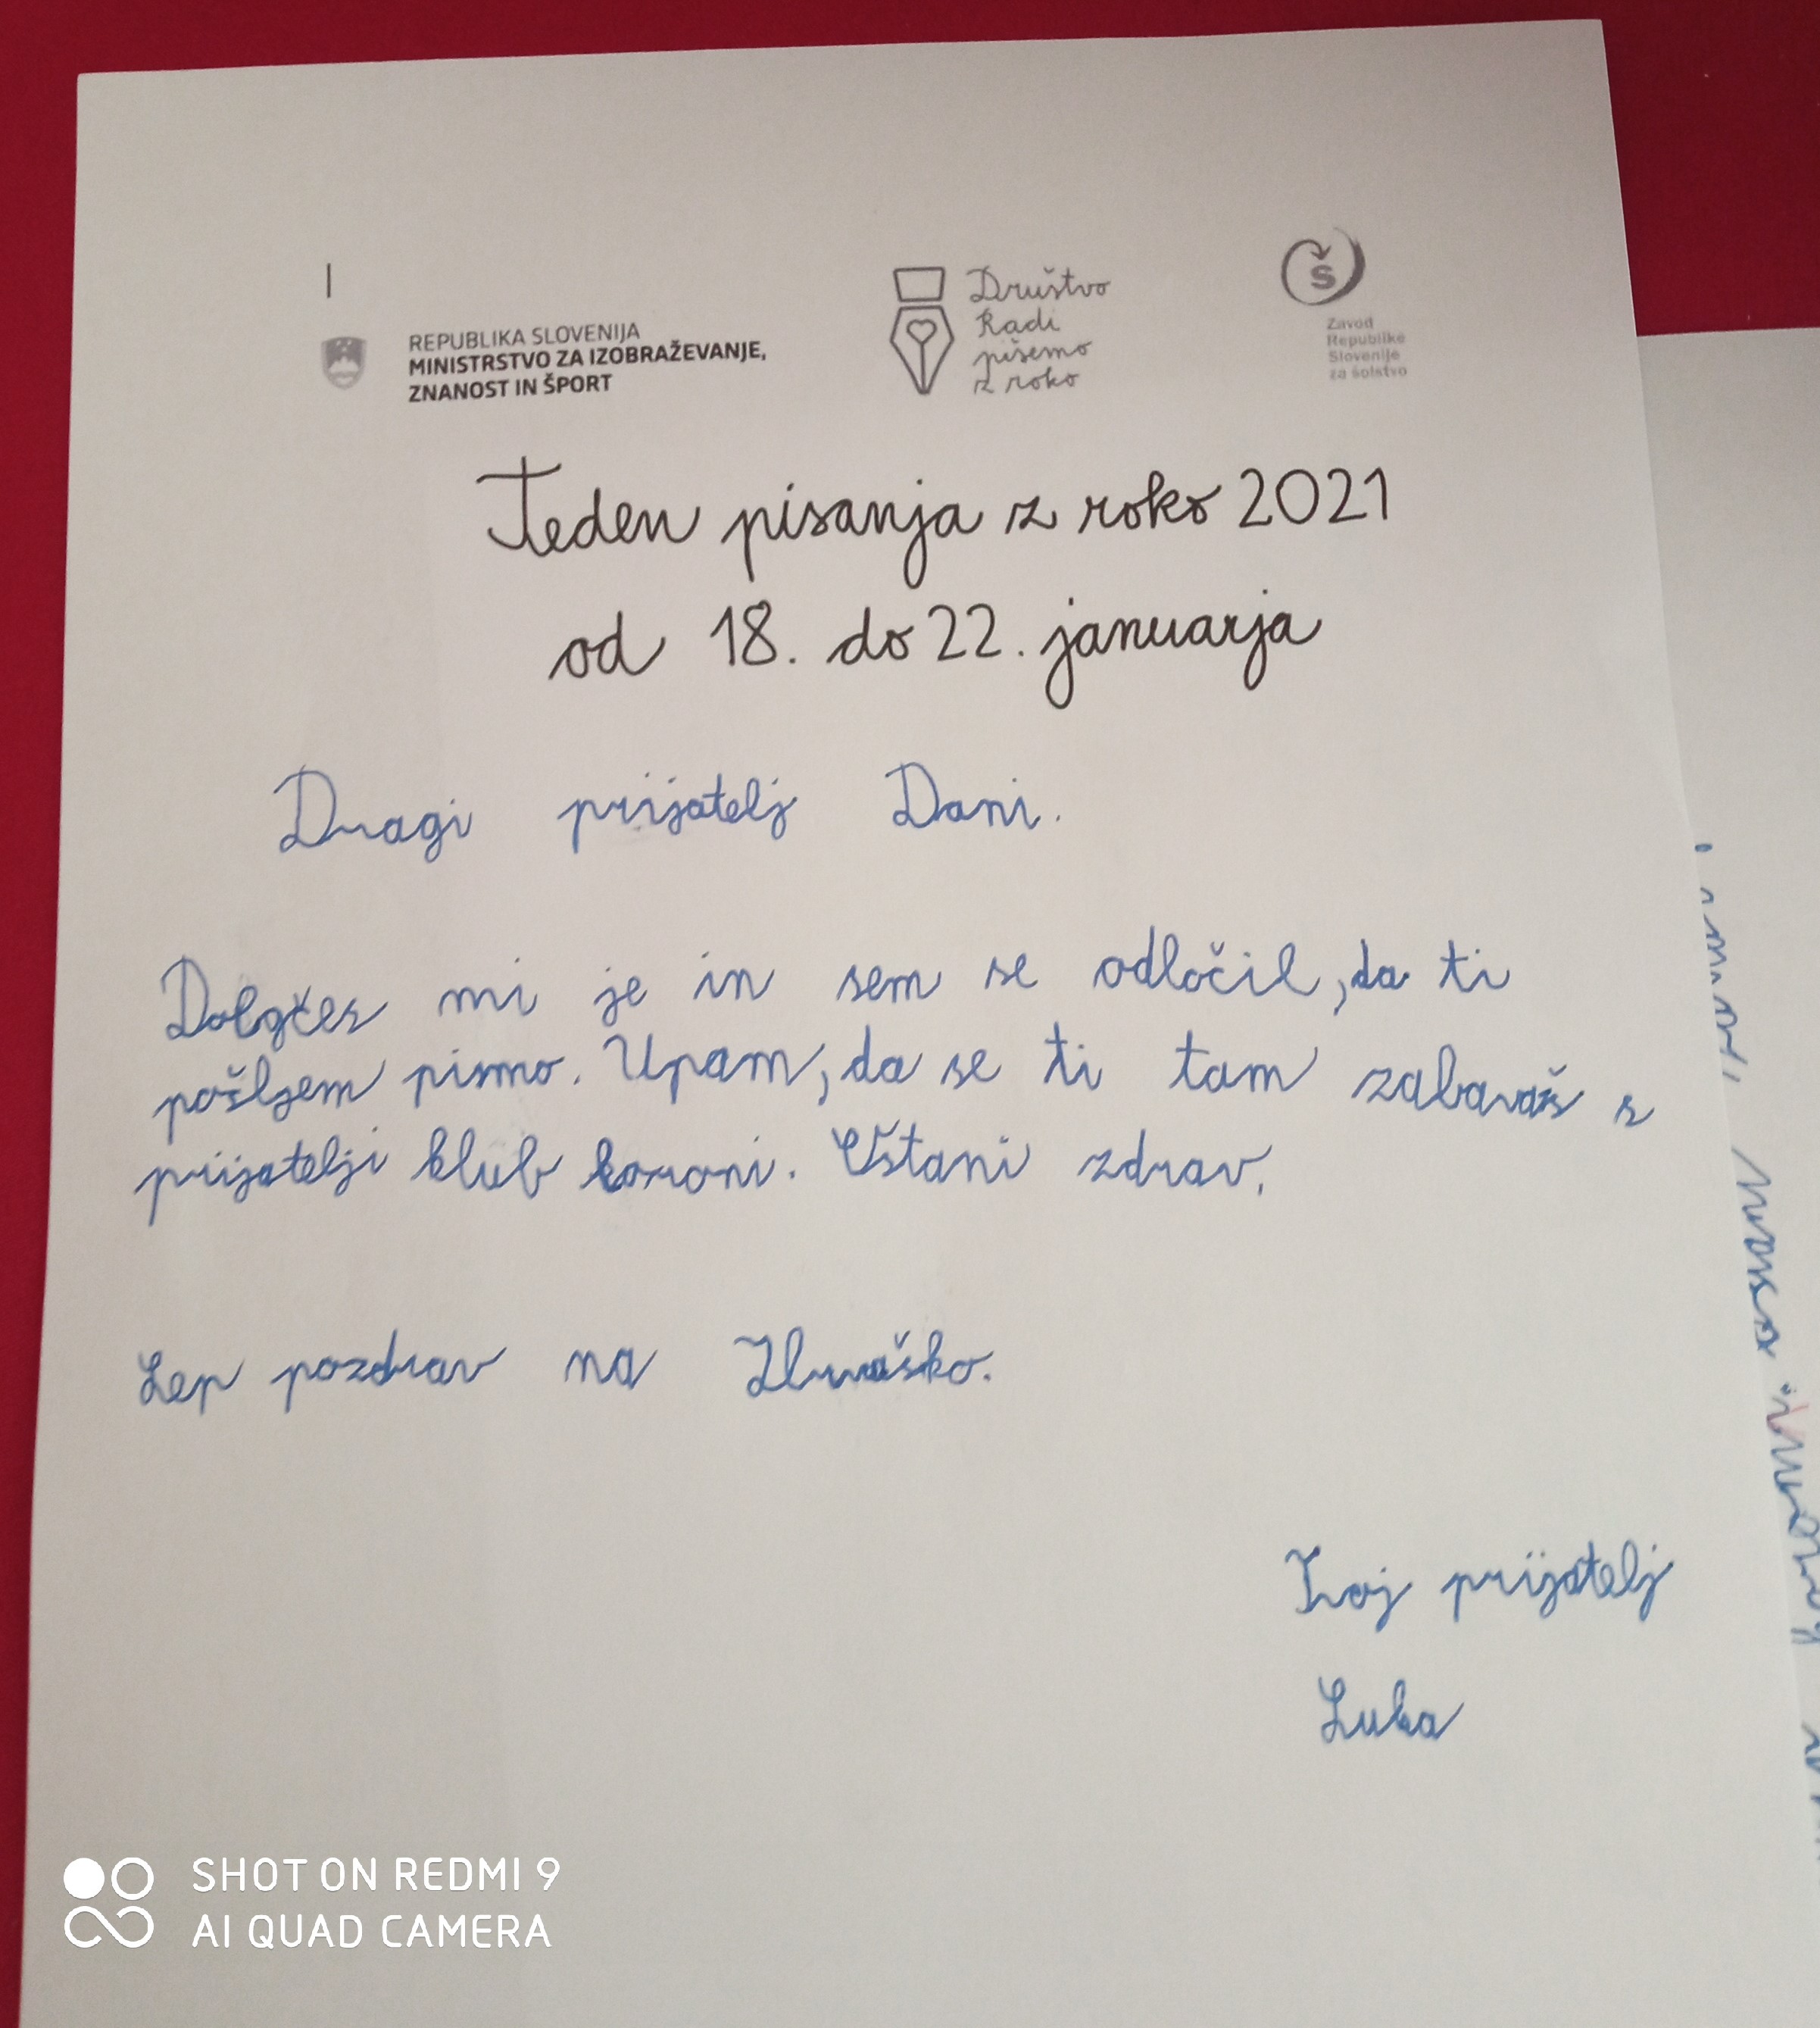 REPUBLIKA SLOVENIJA
MINISTRSTVO ZA IZOBRAŽEVANJE,
ZNANOST IN ŠPORT
Društvo
Radi
pišemo
z roko
Š
Zavod
Republike
Slovenije
za šolstvo
Teden pisanja z roko 2021
od 18. do 22. januarja
Dragi prijatelj Dani.
Dolgčes mi je in sem se odločil, da ti
pošljem pismo. Upam, da se ti tam zabavaš s
prijatelji kljub koroni. Ostani zdrav.
Lep pozdrav na Hrvaško.
Tvoj prijatelj
Luka
SHOT ON REDMI 9
AI QUAD CAMERA